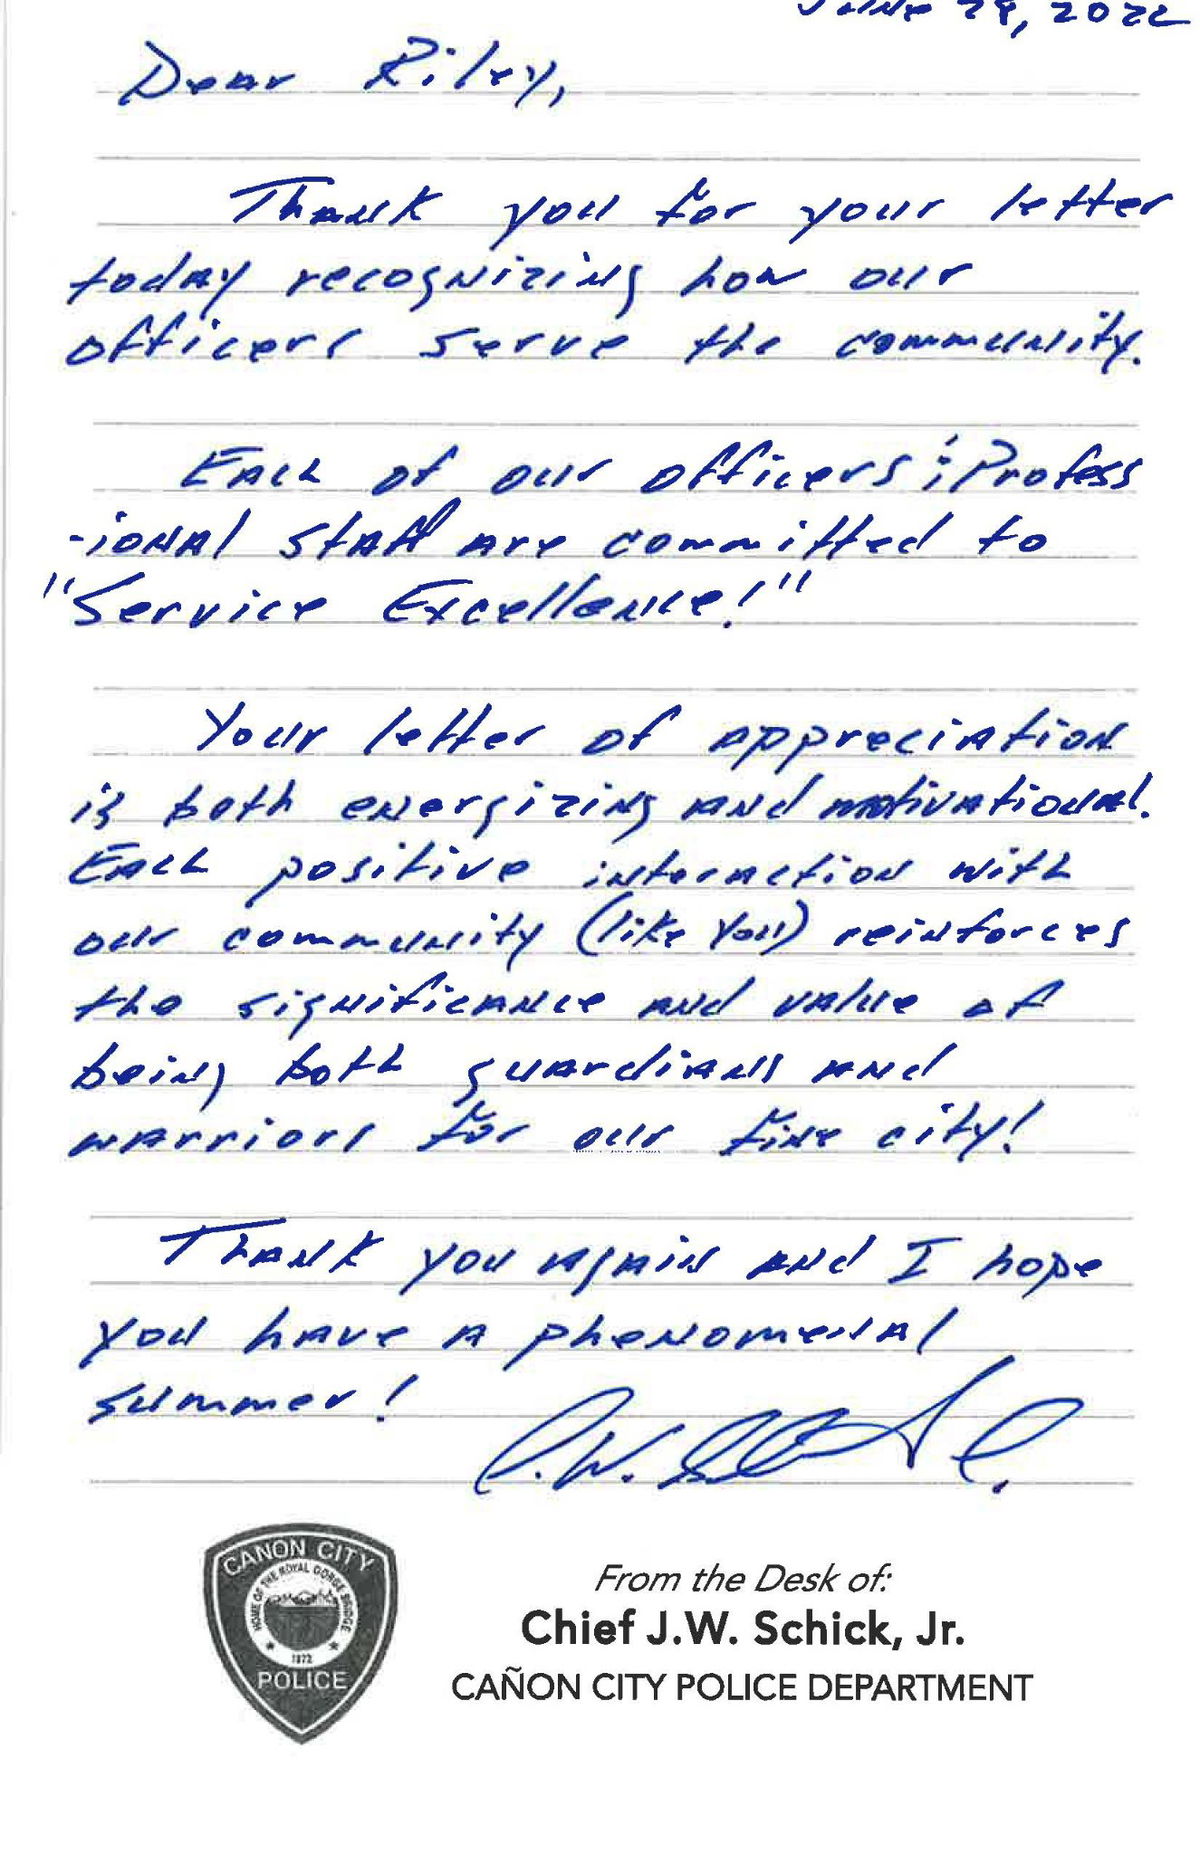 June 28, 2022
Dear Riley,
Thank you for your letter
today recognizing how our
officers serve the community.
Each of our officers & Profess
-ional staff are committed to
"Service Excellence!"
Your letter of appreciation
is both energizing and motivational.
Each positive interaction with
our community (like you) reinforces
the significance and value of
being both guardians and
warriors for our fine city!
Thank you again and I hope
you have a phenomenal
summer!
J.W. Schick, Jr.
CAÑON CITY
HOME OF THE ROYAL GORGE BRIDGE
1872
POLICE
From the Desk of:
Chief J.W. Schick, Jr.
CAÑON CITY POLICE DEPARTMENT